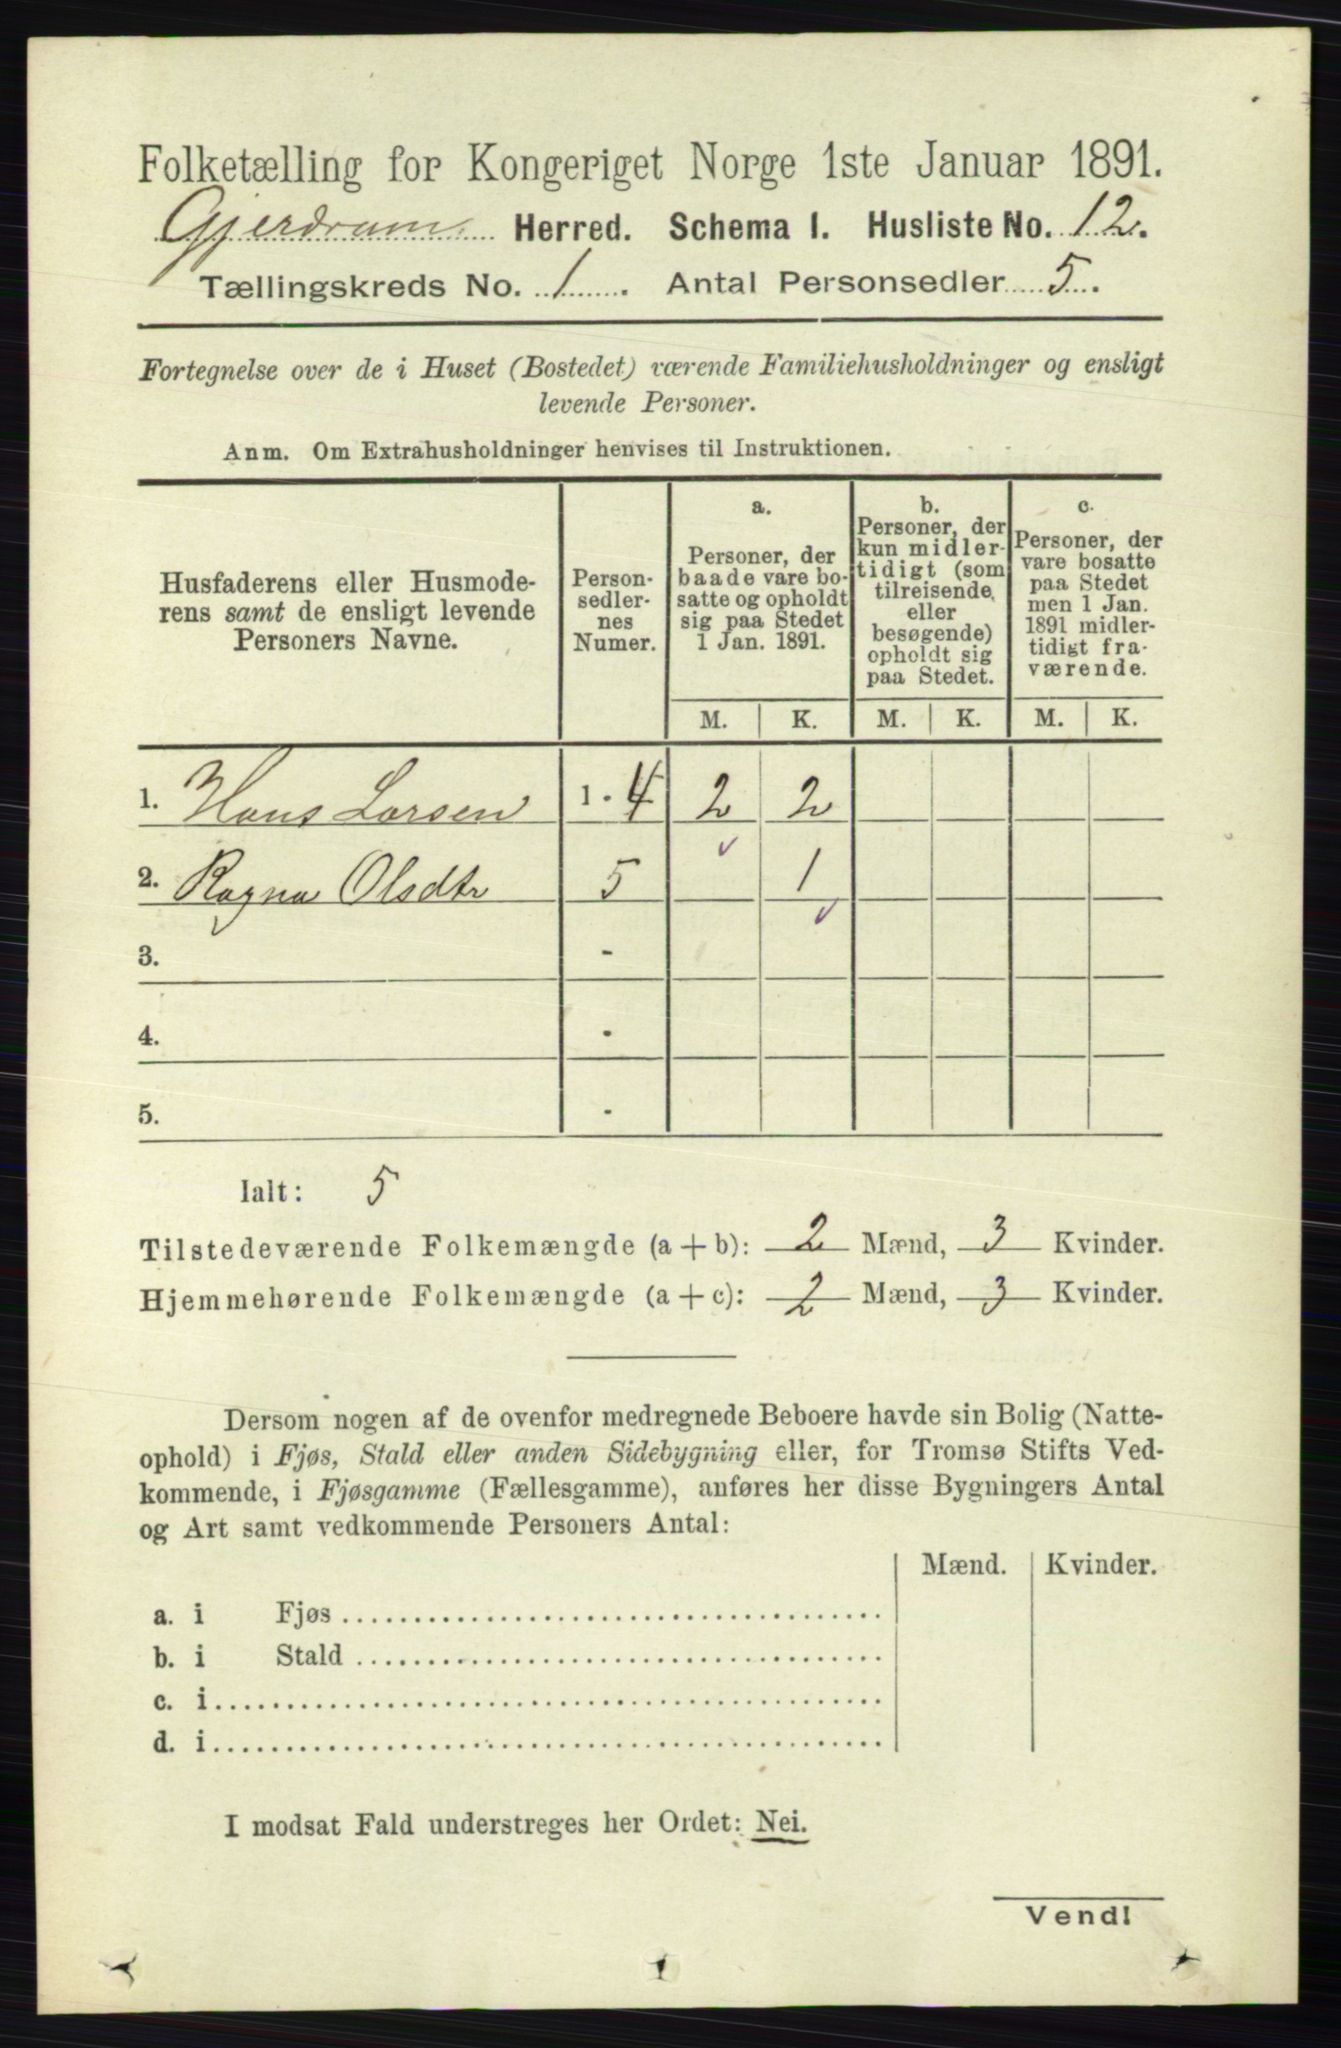 Folketælling for Kongeriget Norge 1ste Januar 1891.
Gjerdrum Herred. Schema I. Husliste No. 12.
Tællingskreds No. 1. Antal Personsedler 5.
Fortegnelse over de i Huset (Bostedet) værende Familiehusholdninger og ensligt
levende Personer.
Anm. Om Extrahusholdninger henvises til Instruktionen.
Husfaderens eller Husmode-
rens samt de ensligt levende
Personers Navne.
Person-
sedler-
nes
Numer.
a.
Personer, der
baade vare bo-
satte og opholdt
sig paa Stedet
1 Jan. 1891.
b.
Personer, der
kun midler-
tidigt (som
tilreisende
eller
besøgende)
opholdt sig
paa Stedet.
c.
Personer, der
vare bosatte
paa Stedet
men 1 Jan.
1891 midler-
tidigt fra-
værende.
M. K. M. K. M. K.
1. Hans Larsen 1 - 4 2 2
2. Ragna Olsdtr 5 1
3. -
4. -
5. -
Ialt: 5
Tilstedeværende Folkemængde (a + b): 2 Mænd, 3 Kvinder.
Hjemmehørende Folkemængde (a + c): 2 Mænd, 3 Kvinder.
Dersom nogen af de ovenfor medregnede Beboere havde sin Bolig (Natte-
ophold) i Fjøs, Stald eller anden Sidebygning eller, for Tromsø Stifts Ved-
kommende, i Fjøsgamme (Fællesgamme), anføres her disse Bygningers Antal
og Art samt vedkommende Personers Antal:
Mænd. Kvinder.
a. i Fjøs
b. i Stald
c. i
d. i
I modsat Fald understreges her Ordet: Nei.
Vend!